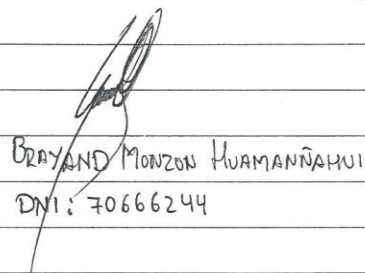 BRAYAND MONZON HUAMANÑAHUI
DNI: 70666244